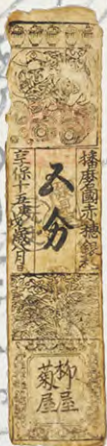 播磨國赤穂銀札
五分
享保十五庚戌歳月
柳屋
菊屋